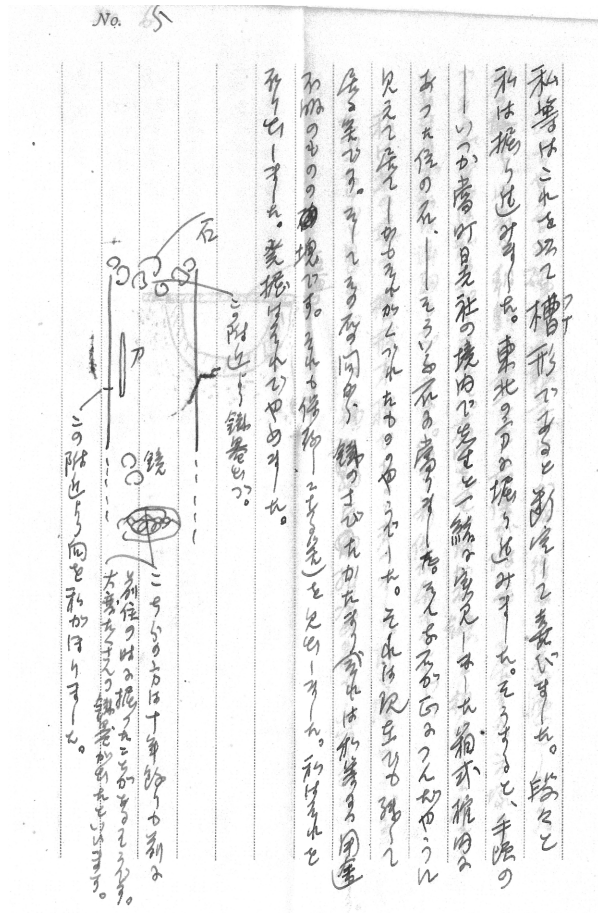 No. 65
私等はこれを以て槽形であると断定して喜びました。段々と
フネ
私は掘り進みました。東北の方に掘り進みました。そうすると、手頃の
――いつか当町日吉社の境内で先生と一緒に実見しました箱式棺内に
あった位の石、――そういふ石に当りました。そんな石が正につんだやうに
見えて居て――しかもそれがくづれたものゝやうでした。それは現在でも残して
居る筈です。そしてその石の間から鉄のさびたかたまり(それは私等には用途
不明のものゝ塊です。それも保存してある筈)を見出しました。私はそれを
取り出しました。発掘はそれでやめました。
石
この附近より鉄器出づ。
刀
鏡
こちらの方は十年餘りも前に
前住の時に掘ったことがあるそうです。
大変たくさんの鉄器が出たといひます。
この附近より向を私がほりました。